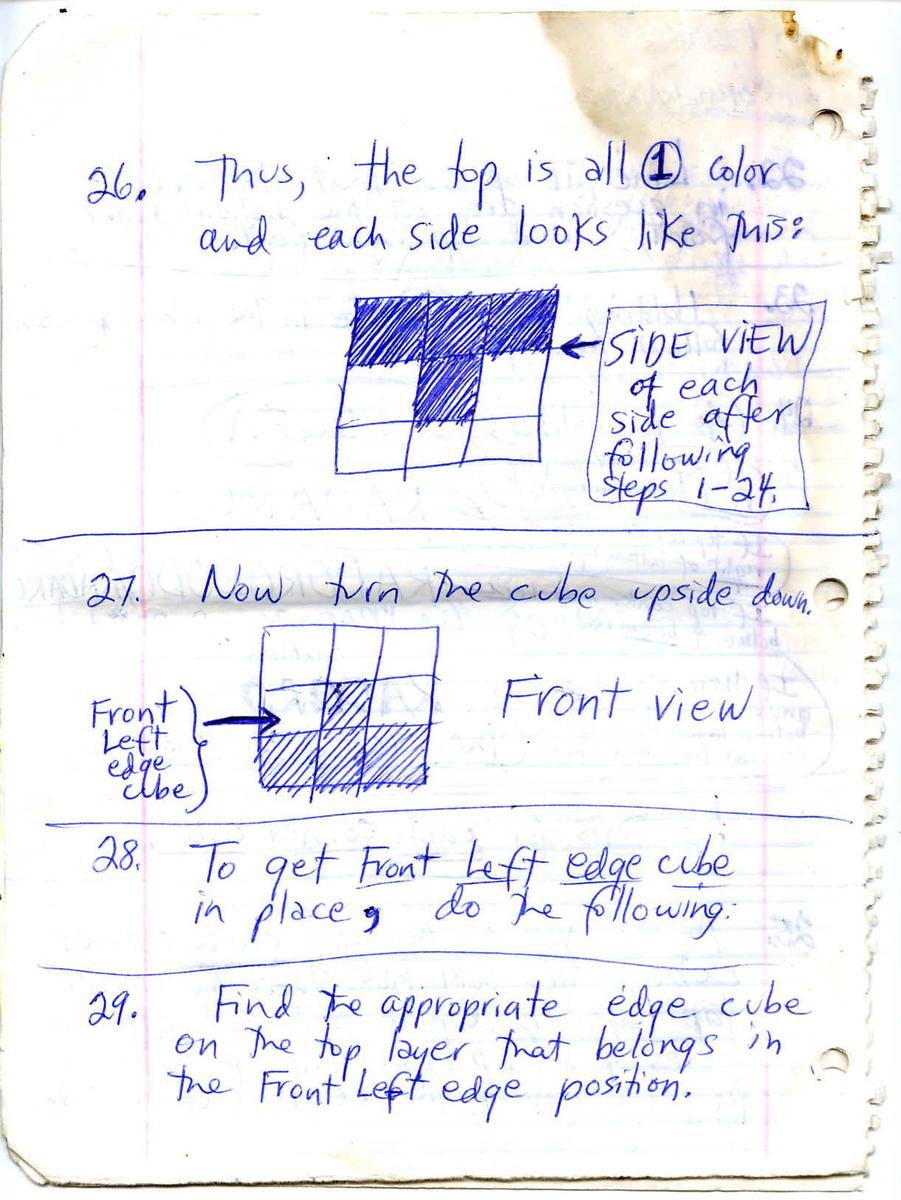 26. Thus, the top is all 1 color
and each side looks like this:
SIDE VIEW
of each
side after
following
steps 1-24.
27. Now turn the cube upside down.
Front
Left
edge
cube
Front view
28. To get Front Left edge cube
in place, do the following:
29. Find the appropriate edge cube
on the top layer that belongs in
the Front Left edge position.